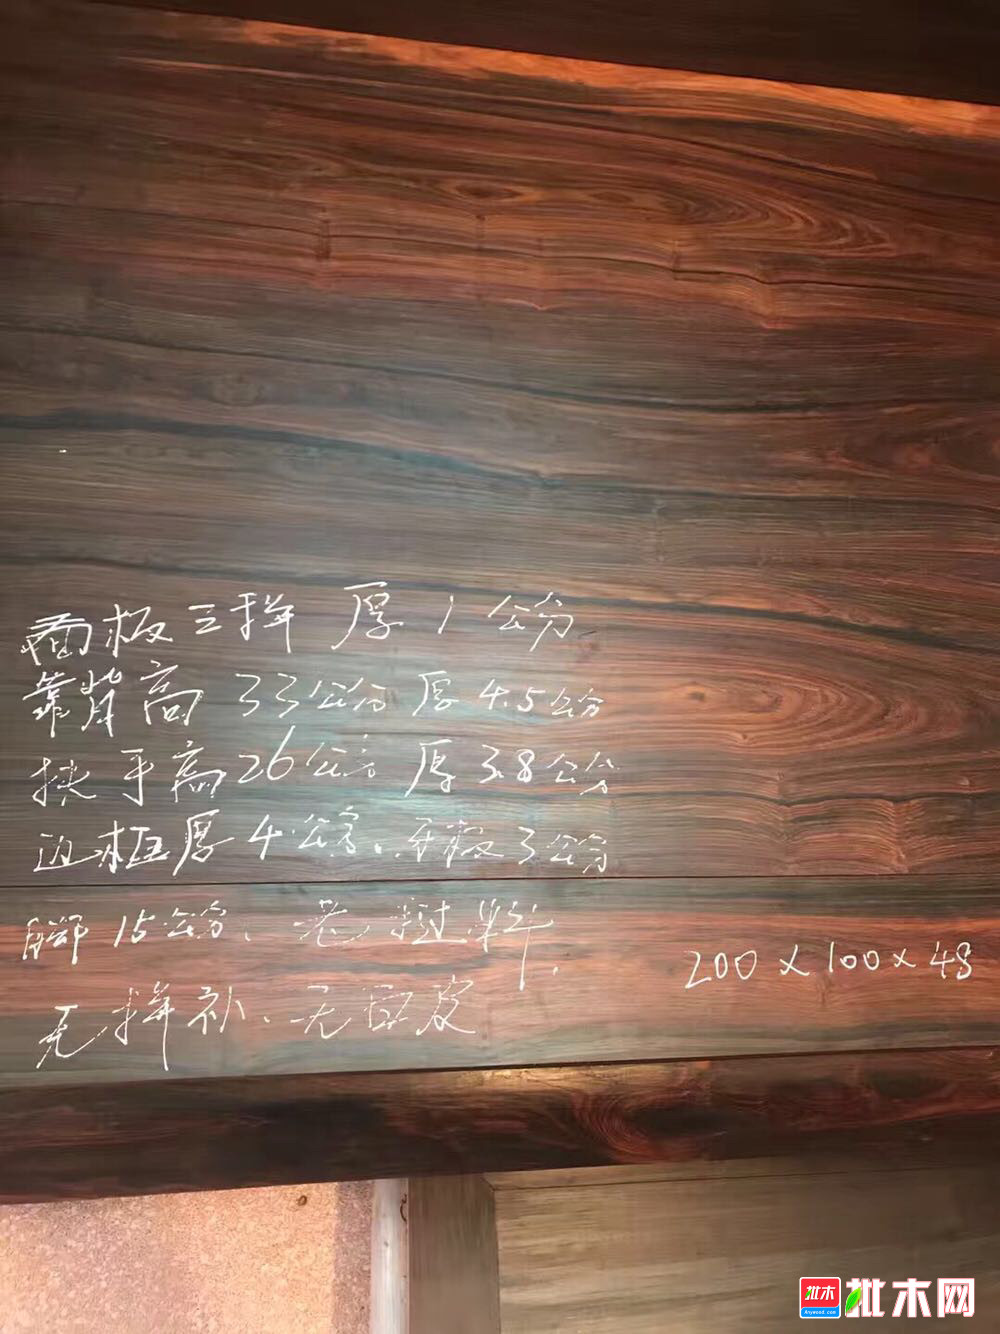 面板三拼 厚1公分
靠背高33公分厚4.5公分
扶手高26公分 厚3.8公分
边框厚4公分、牙板3公分
脚15公分、老挝料.
200×100×48
无拼补、无白皮
批木
Anywood.com
批木网